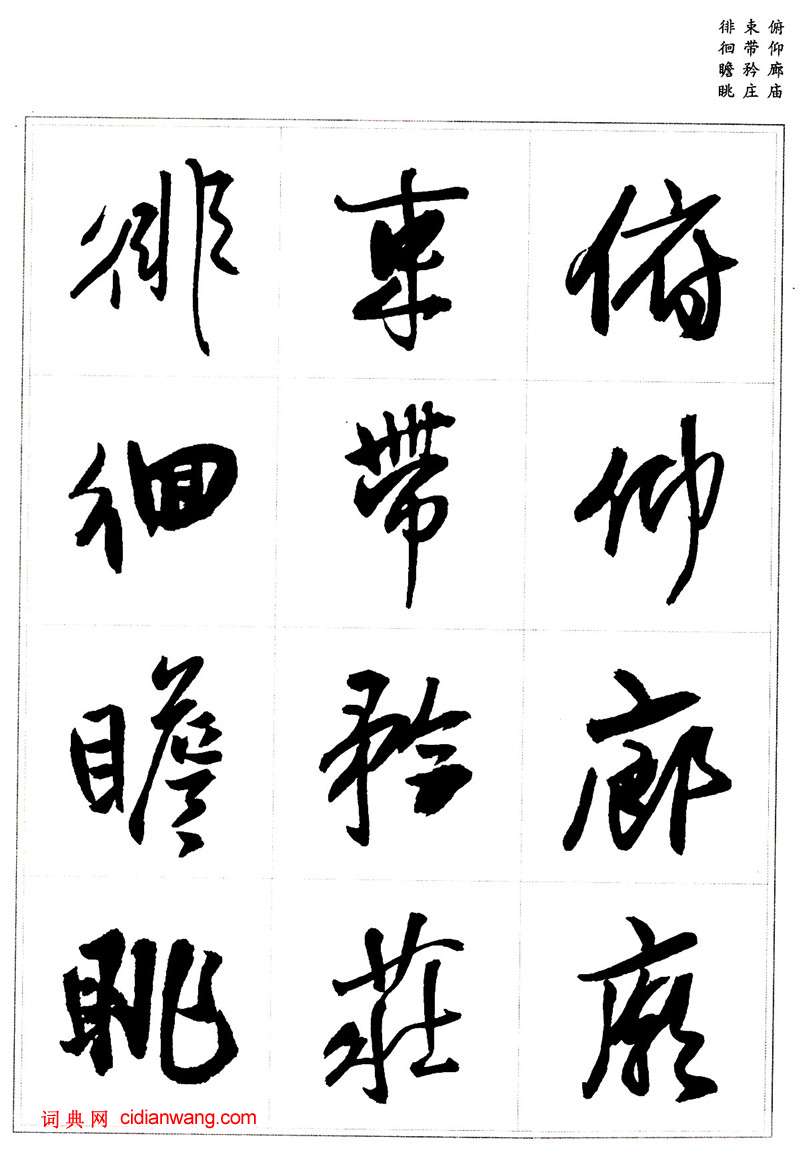 俯仰廊庙
束带矜庄
徘徊瞻眺
俯仰廊廟
束帶矜莊
徘徊瞻眺
词典网 cidianwang.com